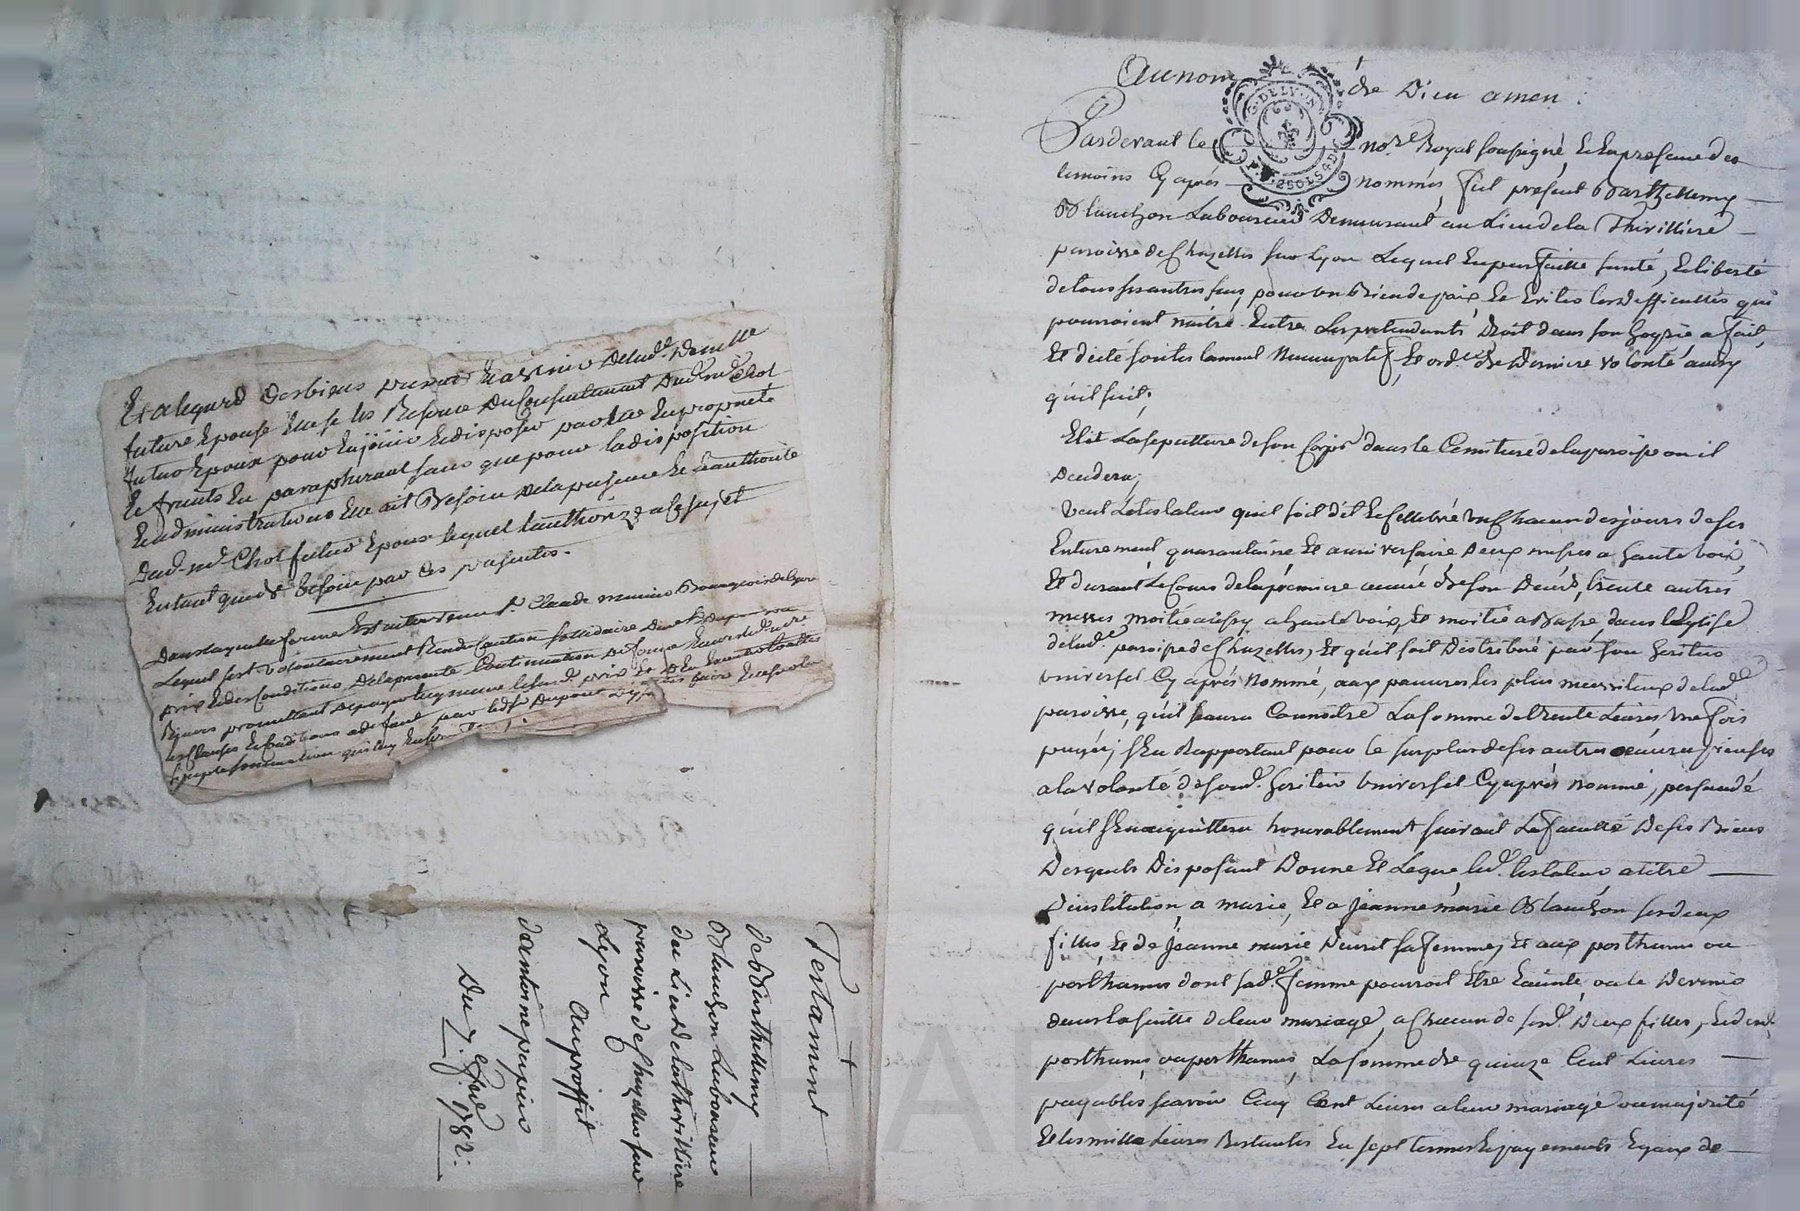 Et alegard des biens presens et avenir de lad.e Demelle
future Epouse Elle se les Reserve du Consentement dud. mr Chol
futur Epoux pour En joüir Et disposer par Elle En propriété
Et fruits En paraphernal sans que pour la disposition
Et administration Elle ait Besoin de la presence Et L'authorité
dud. mr. Chol futur Epoux lequel L'authorize a ce sujet
En tant que de Besoin par ces presentes.
Dans laquelle ferme Est intervenu sr. Claude Bourgeois de Lyon
Lequel s'est volontairement Rendu Caution solidaire
prix Et des Conditions de la presente
promettant de payer Luy meme
a deffaut par led. sr Dupont
sommation
Testament
de Barthellemy
Blanchon Laboureur
du Lieu de la thivilliere
paroisse de Chazelles sur
Lyon
Au proffit
d'antoine pipier
Du 7.e 1782.
Au nom de Dieu amen :
G. DE LYON
2 SOLS 4 D
Pardevant le no.re Royal soussigné, Et En presence des
temoins Cy après nommés, fut présent Barthellemy
Blanchon Laboureur Demeurant au Lieu de la Thivilliere
paroisse de Chazelles sur Lyon Lequel En parfaitte santé, Et liberté
de tous ses autres sens, pour un Bien de paix Et Eviter les difficultés qui
pourroient naitre Entre Les pretendants Droit dans son hoyrie a fait,
Et dicté son testament Nuncupatif, Et ord.ce de Derniere volonté ainsy
qu'il suit;
Elit La sepulture de son Corps dans le Cemitiere de la paroisse ou il
Decedera;
Veut Le testateur qu'il soit dit Et Cellebré un Chacun des jours de ses
Enterrement quarantaine Et anniversaire deux messes a haute voix,
Et durant Le Cours de la première année de son Décés, trente autres
messes moitié aussy a haute voix, Et moitié a Basse dans L'Eglise
de lad.e paroisse de Chazelles, Et qu'il soit Distribué par son heritier
universel Cy après Nommé, aux pauvres les plus necessiteux de lad.e
paroisse, qu'il sçaura Connoître La somme de trente Livres une fois
payée; s'En Rapportant pour le surplus de ses autres oeuvres pieuses
a la volonté de sond. heritier universel Cy après nommé, persuadé
qu'il s'En acquittera honorablement suivant La faculté De ses Biens
Desquels Disposant Donne Et Legue led. testateur a titre
D'institution a marie, Et a Jeanne marie Blanchon ses deux
filles, Et de Jeanne marie sa femme, Et aux posthume ou
posthumes dont sad.e femme pourroit Etre Enceinte, ou le Devenir
dans la suitte de leur mariage, a Chacun de sesd. Deux filles, Et desd.
posthume ou posthumes, La somme de quinze Cent Livres
payables sçavoir Cinq Cent Livres a leur mariage ou majorité
Et les mille Livres Restantes En sept termes Et payements Egaux de